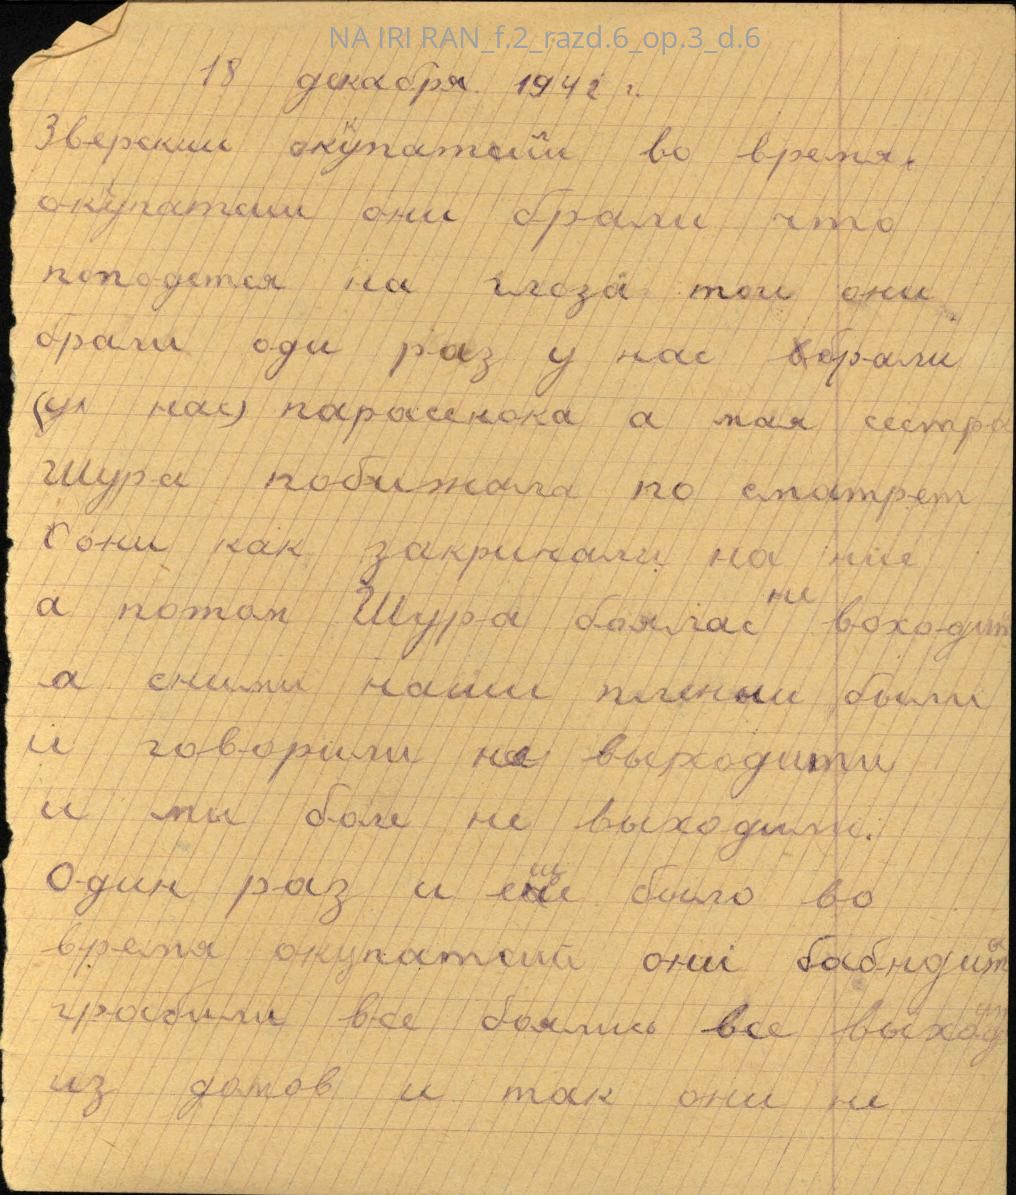 NA IRI RAN_f.2_razd.6_op.3_d.6
18 декабря 1942 г.
Зверский окупатсий во время.
окупатсии они брали что
поподется на глоза тои они
брали оди раз у нас брали
(ун нас) парасенока а мая сестра
Шура побижала по сматрет
они как закричали на ние
а потом Шура боялас не воходит
а сними наши плении были
и говорили не выходити
и мы боле не выходили.
Один раз и еще было во
время окупатсий они
грабили все боялись все выход
из домов и так они не